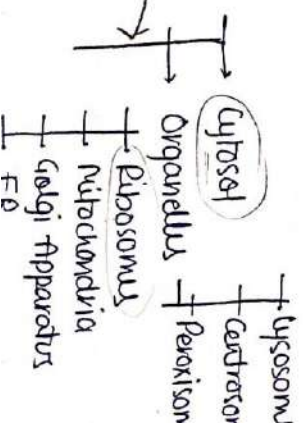 Cytosol
Organelles
Ribosomes
Mitochondria
Golgi Apparatus
Lysosom
Centrosom
Peroxisom